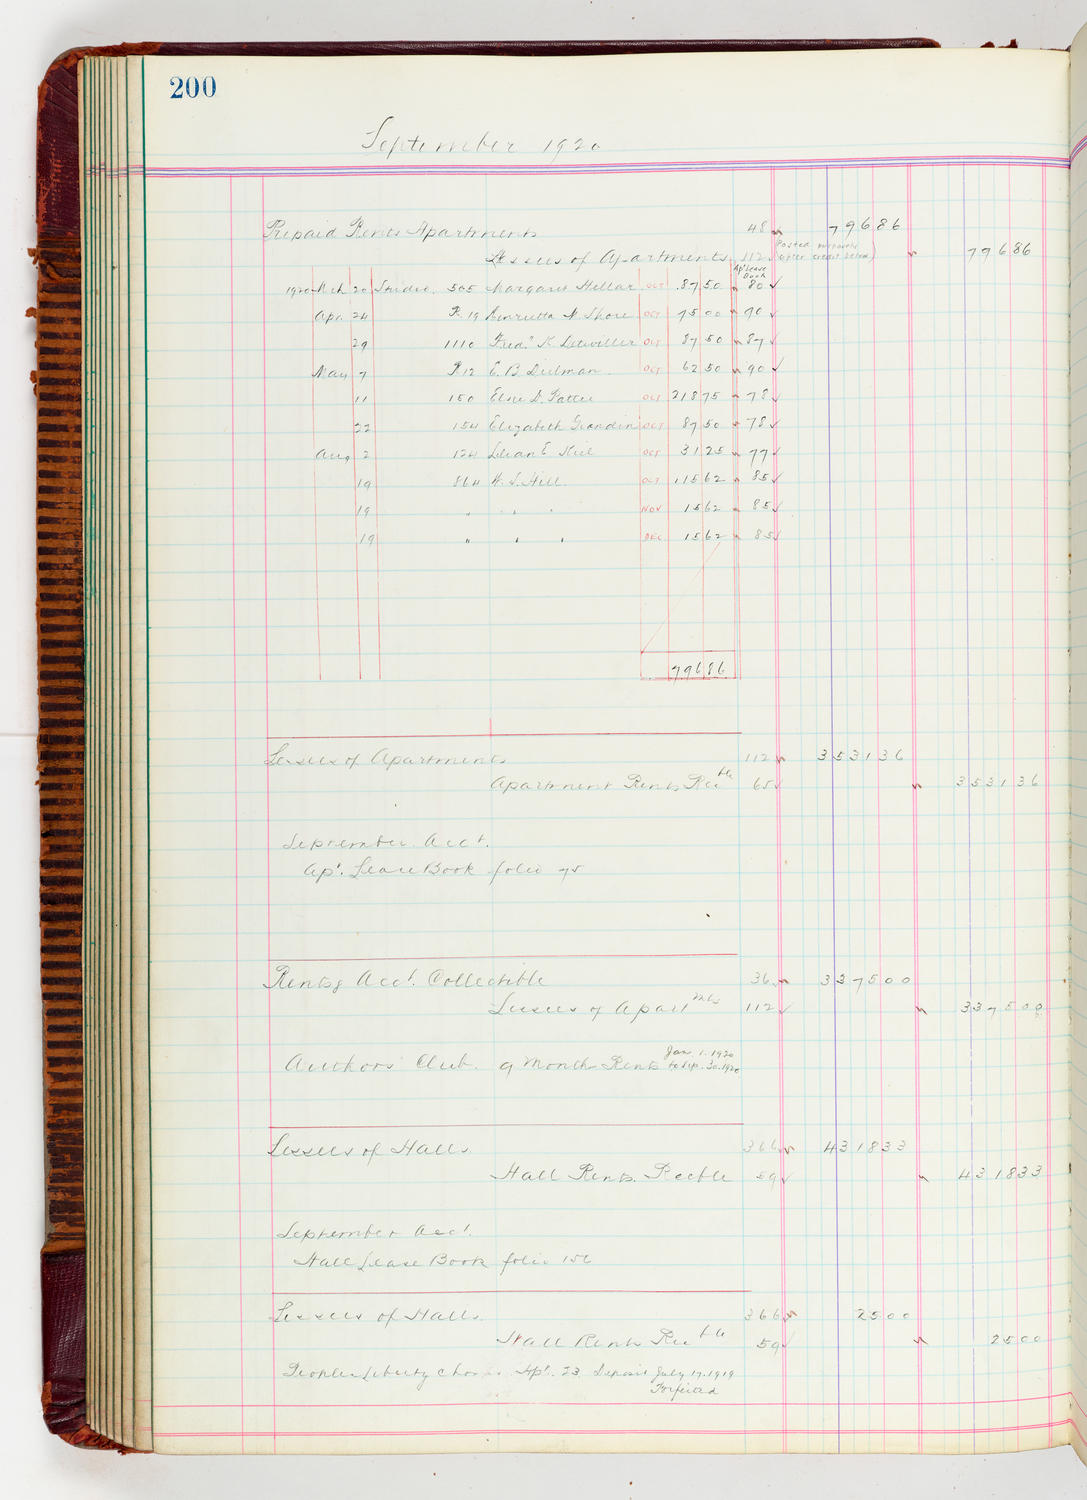 200
September 1920
Prepaid Rents Apartments 48 796 86
Lessees of Apartments 112 796 86
(Posted
after credit below)
Ap't Lease
Book
1920 Mch 20 Studio 505 Margaret Hellar OCT 87 50 80
Apr 24 R. 19 Henrietta Shore OCT 75 00 90
29 1110 Fred. K. Detwiller OCT 87 50 87
May 7 R 12 E. B. Dielman OCT 62 50 90
11 150 Elsie D. OCT 218 75 78
22 154 Elizabeth Grandin OCT 87 50 78
Aug 2 124 E OCT 31 25 77
19 864 W. S. Hill OCT 115 62 85
19 " " " NOV 15 62 85
19 " " " DEC 15 62 85
796 86
Lessees of Apartments 112 3531 36
Apartment Rents Rec'ble 65 3531 36
September Acct.
Apt. Lease Book folio 75
Rents & Acct. Collectible 36 3375 00
Lessees of Apartmts 112 3375 00
Authors Club 9 Month Rents Jan. 1. 1920
to Sep. 30. 1920
Lessees of Halls 366 4318 33
Hall Rents Rec'ble 59 4318 33
September Acct.
Hall Lease Book folio 156
Lessees of Halls 366 25 00
Hall Rents Rec'ble 59 25 00
Peoples Liberty Chorus Apt. 23 Deposit July 17. 1919
Forfeited